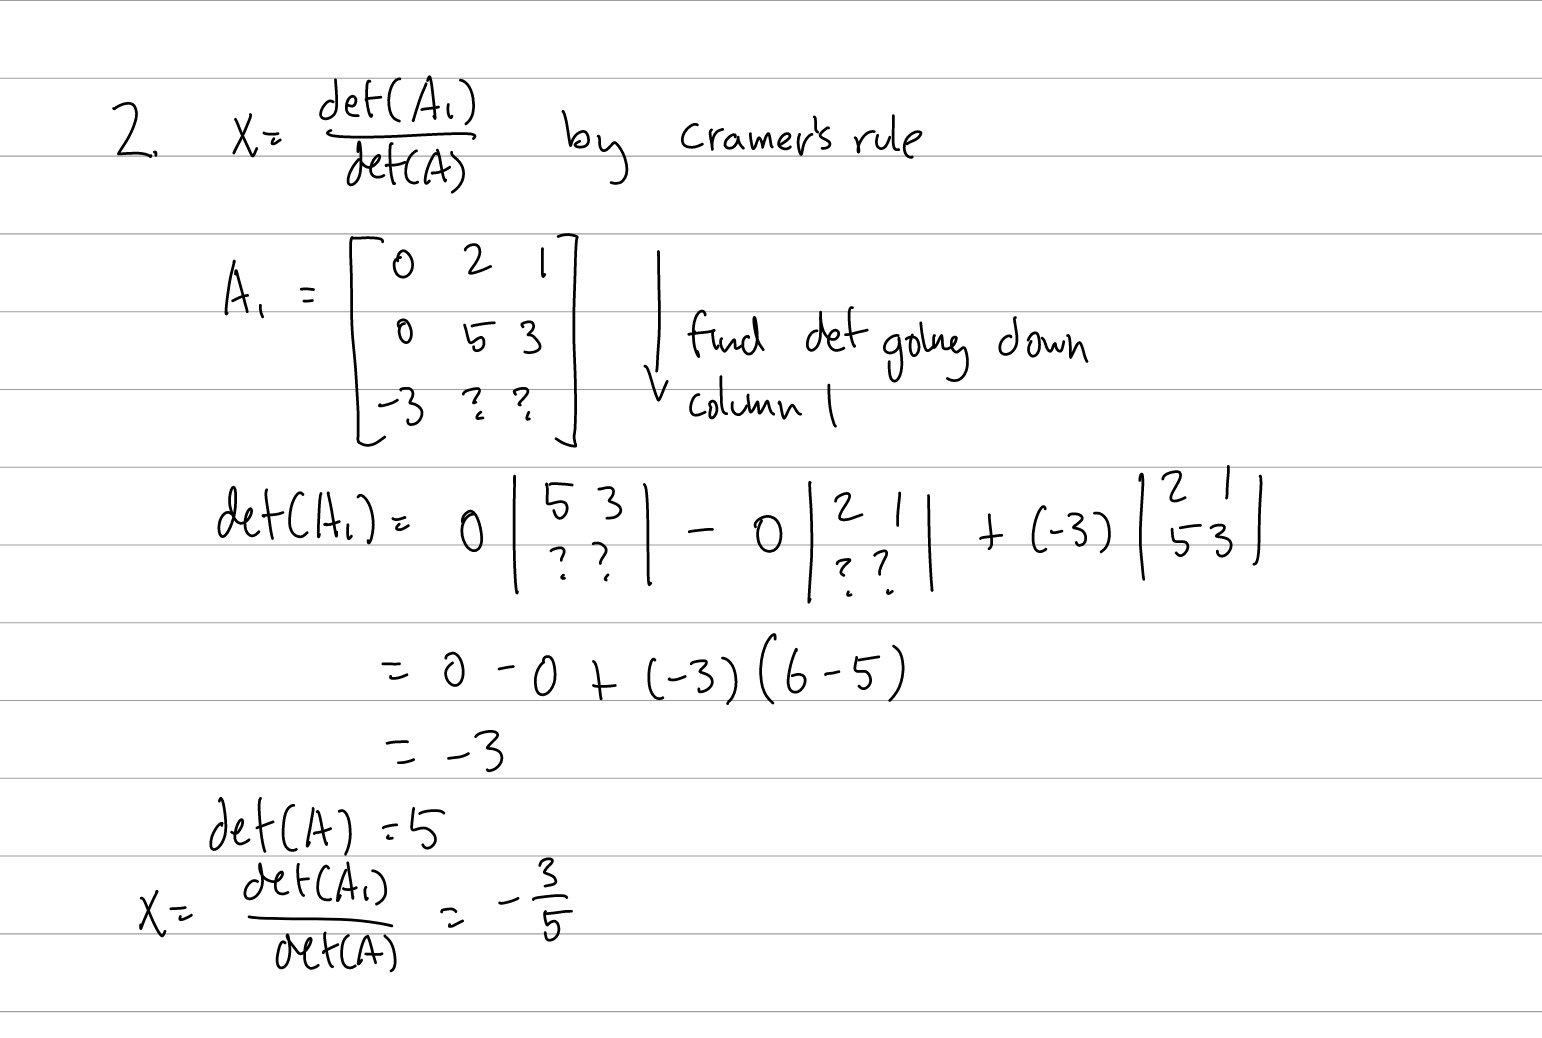 2. x = det(A₁)/det(A) by cramer's rule
A₁ = [0 2 1
0 5 3
-3 ? ?]
↓ find det going down
column 1
det(A₁) = 0 |5 3; ? ?| - 0 |2 1; ? ?| + (-3) |2 1; 5 3|
= 0 - 0 + (-3)(6-5)
= -3
det(A) = 5
x = det(A₁)/det(A) = -3/5